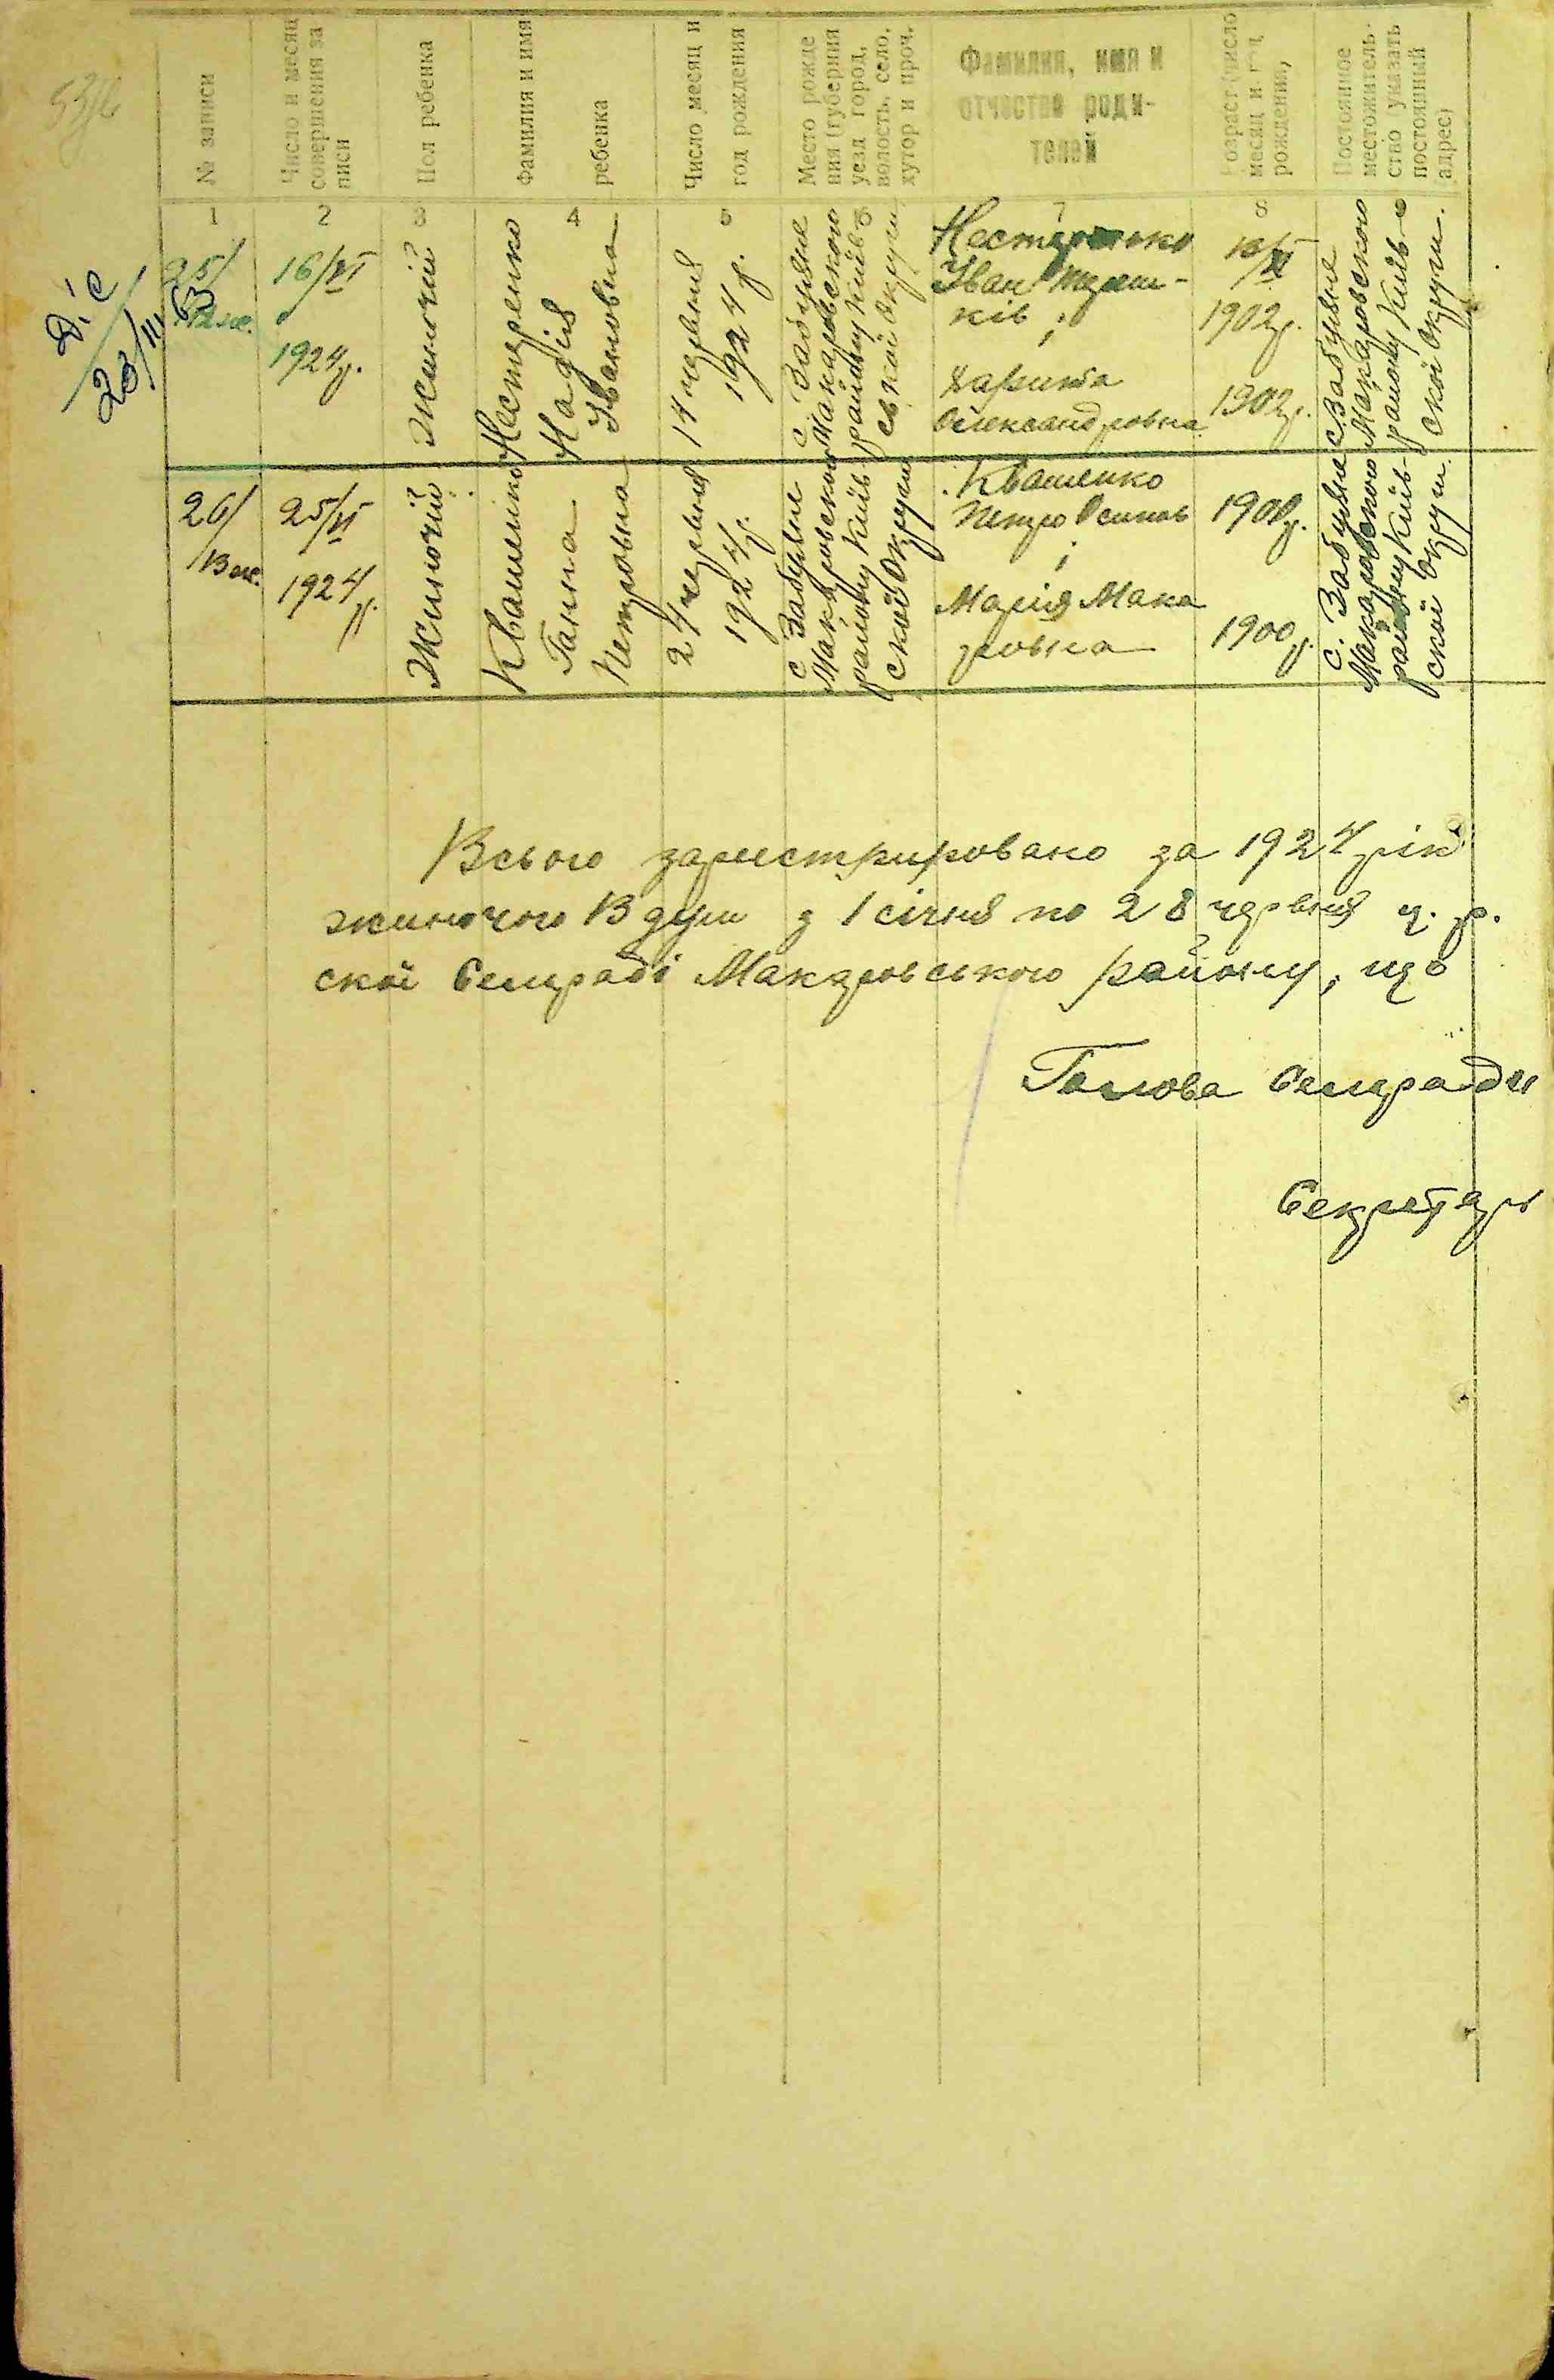 № записи
Число и месяц
совершения за
писи
Пол ребенка
Фамилия и имя
ребенка
Число месяц и
год рождения
Место рожде
ния (губерния
уезд город,
волость, село,
хутор и проч.
Фамилия, имя и
отчество роди-
телей
Возраст (число
месяц и год
рождения,
Постоянное
местожитель-
ство указать
постоянный
адрес)
1 2 3 4 5 6 7 8 9
25/
16/VI
1924р.
Жиночій
Нестеренко
Надія
Івановна
14 червня
1924 р.
с. Забуяне
Макаровского
району Київ
ськой Округи
Нестеренко
Іван
ків
і
Харита
Олександровна
10/XI
1902р.
1902р.
с. Забуяне
Макаровского
району Київ-
ской Округи.
26/
13 ж.
25/VI
1924
р.
Жиночій
Квашенко
Ганна
Петровна
24 червня
1924р.
с Забуяне
Макаровского
району Київ
ской Округи
Квашенко
Петро Осипов
і
Марія Мака
ровна
1900р.
1900р.
с. Забуяне
Макаровского
району Київ-
ской Округи.
Всього зареєстрировано за 1924 рік
жиночого 13 душ з 1 січня по 28 червня ц. р.
ской Сельраді Макаровського району, що
Голова Сельради
Секретарь